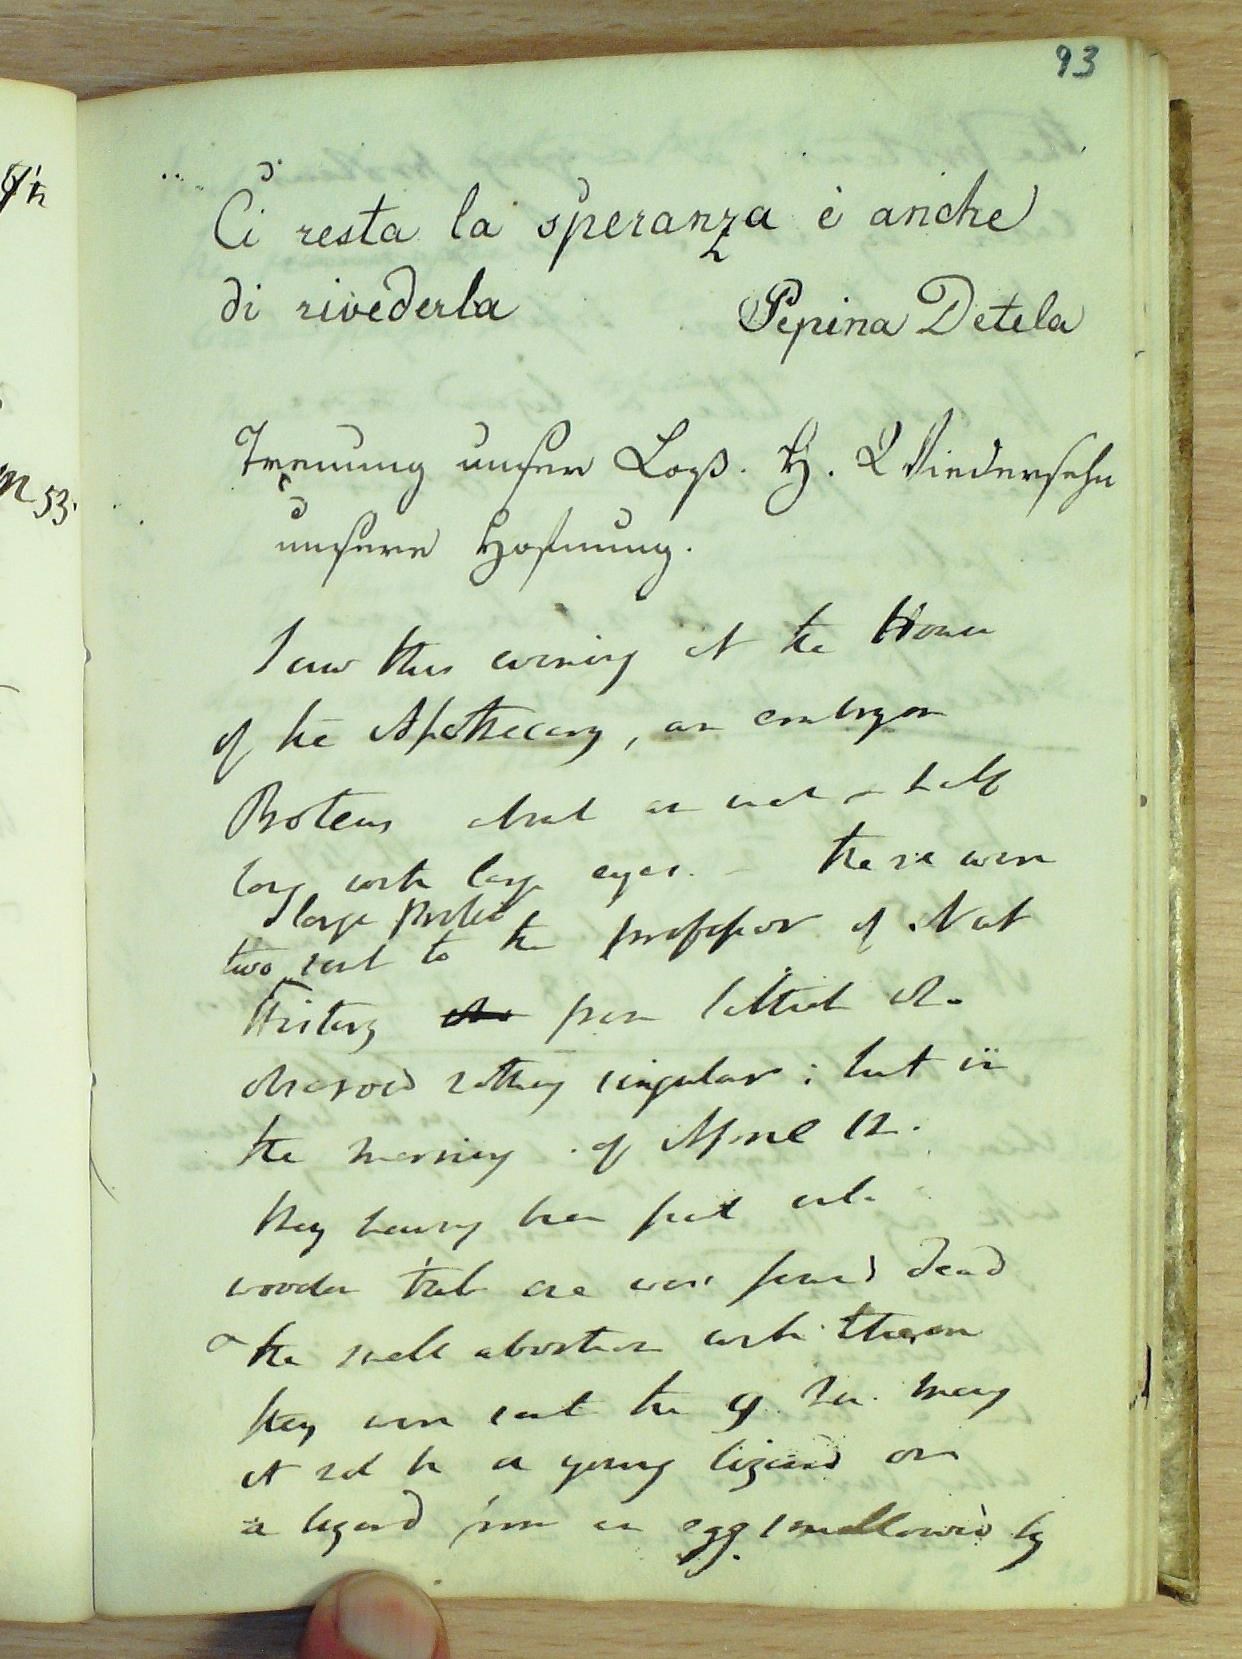 93
Ci resta la speranza è anche
di rivederla Pepina Detela
Trenung unser Loos. H. Wiedersehn
unsere Hofnung.
I saw this evening at the House
of the Apothecary, an embryon
Proteus about an inch & half
long with large eyes. - there were
large Protei
two sent to the professor of Nat
History from Sittich
observed nothing singular; but in
the morning of April 12.
they having been put
wooden tub one was found dead
& the small abortion with them
they were sent the 9.
it not be a young lizard or
a lizard from an egg swallowed by
53.